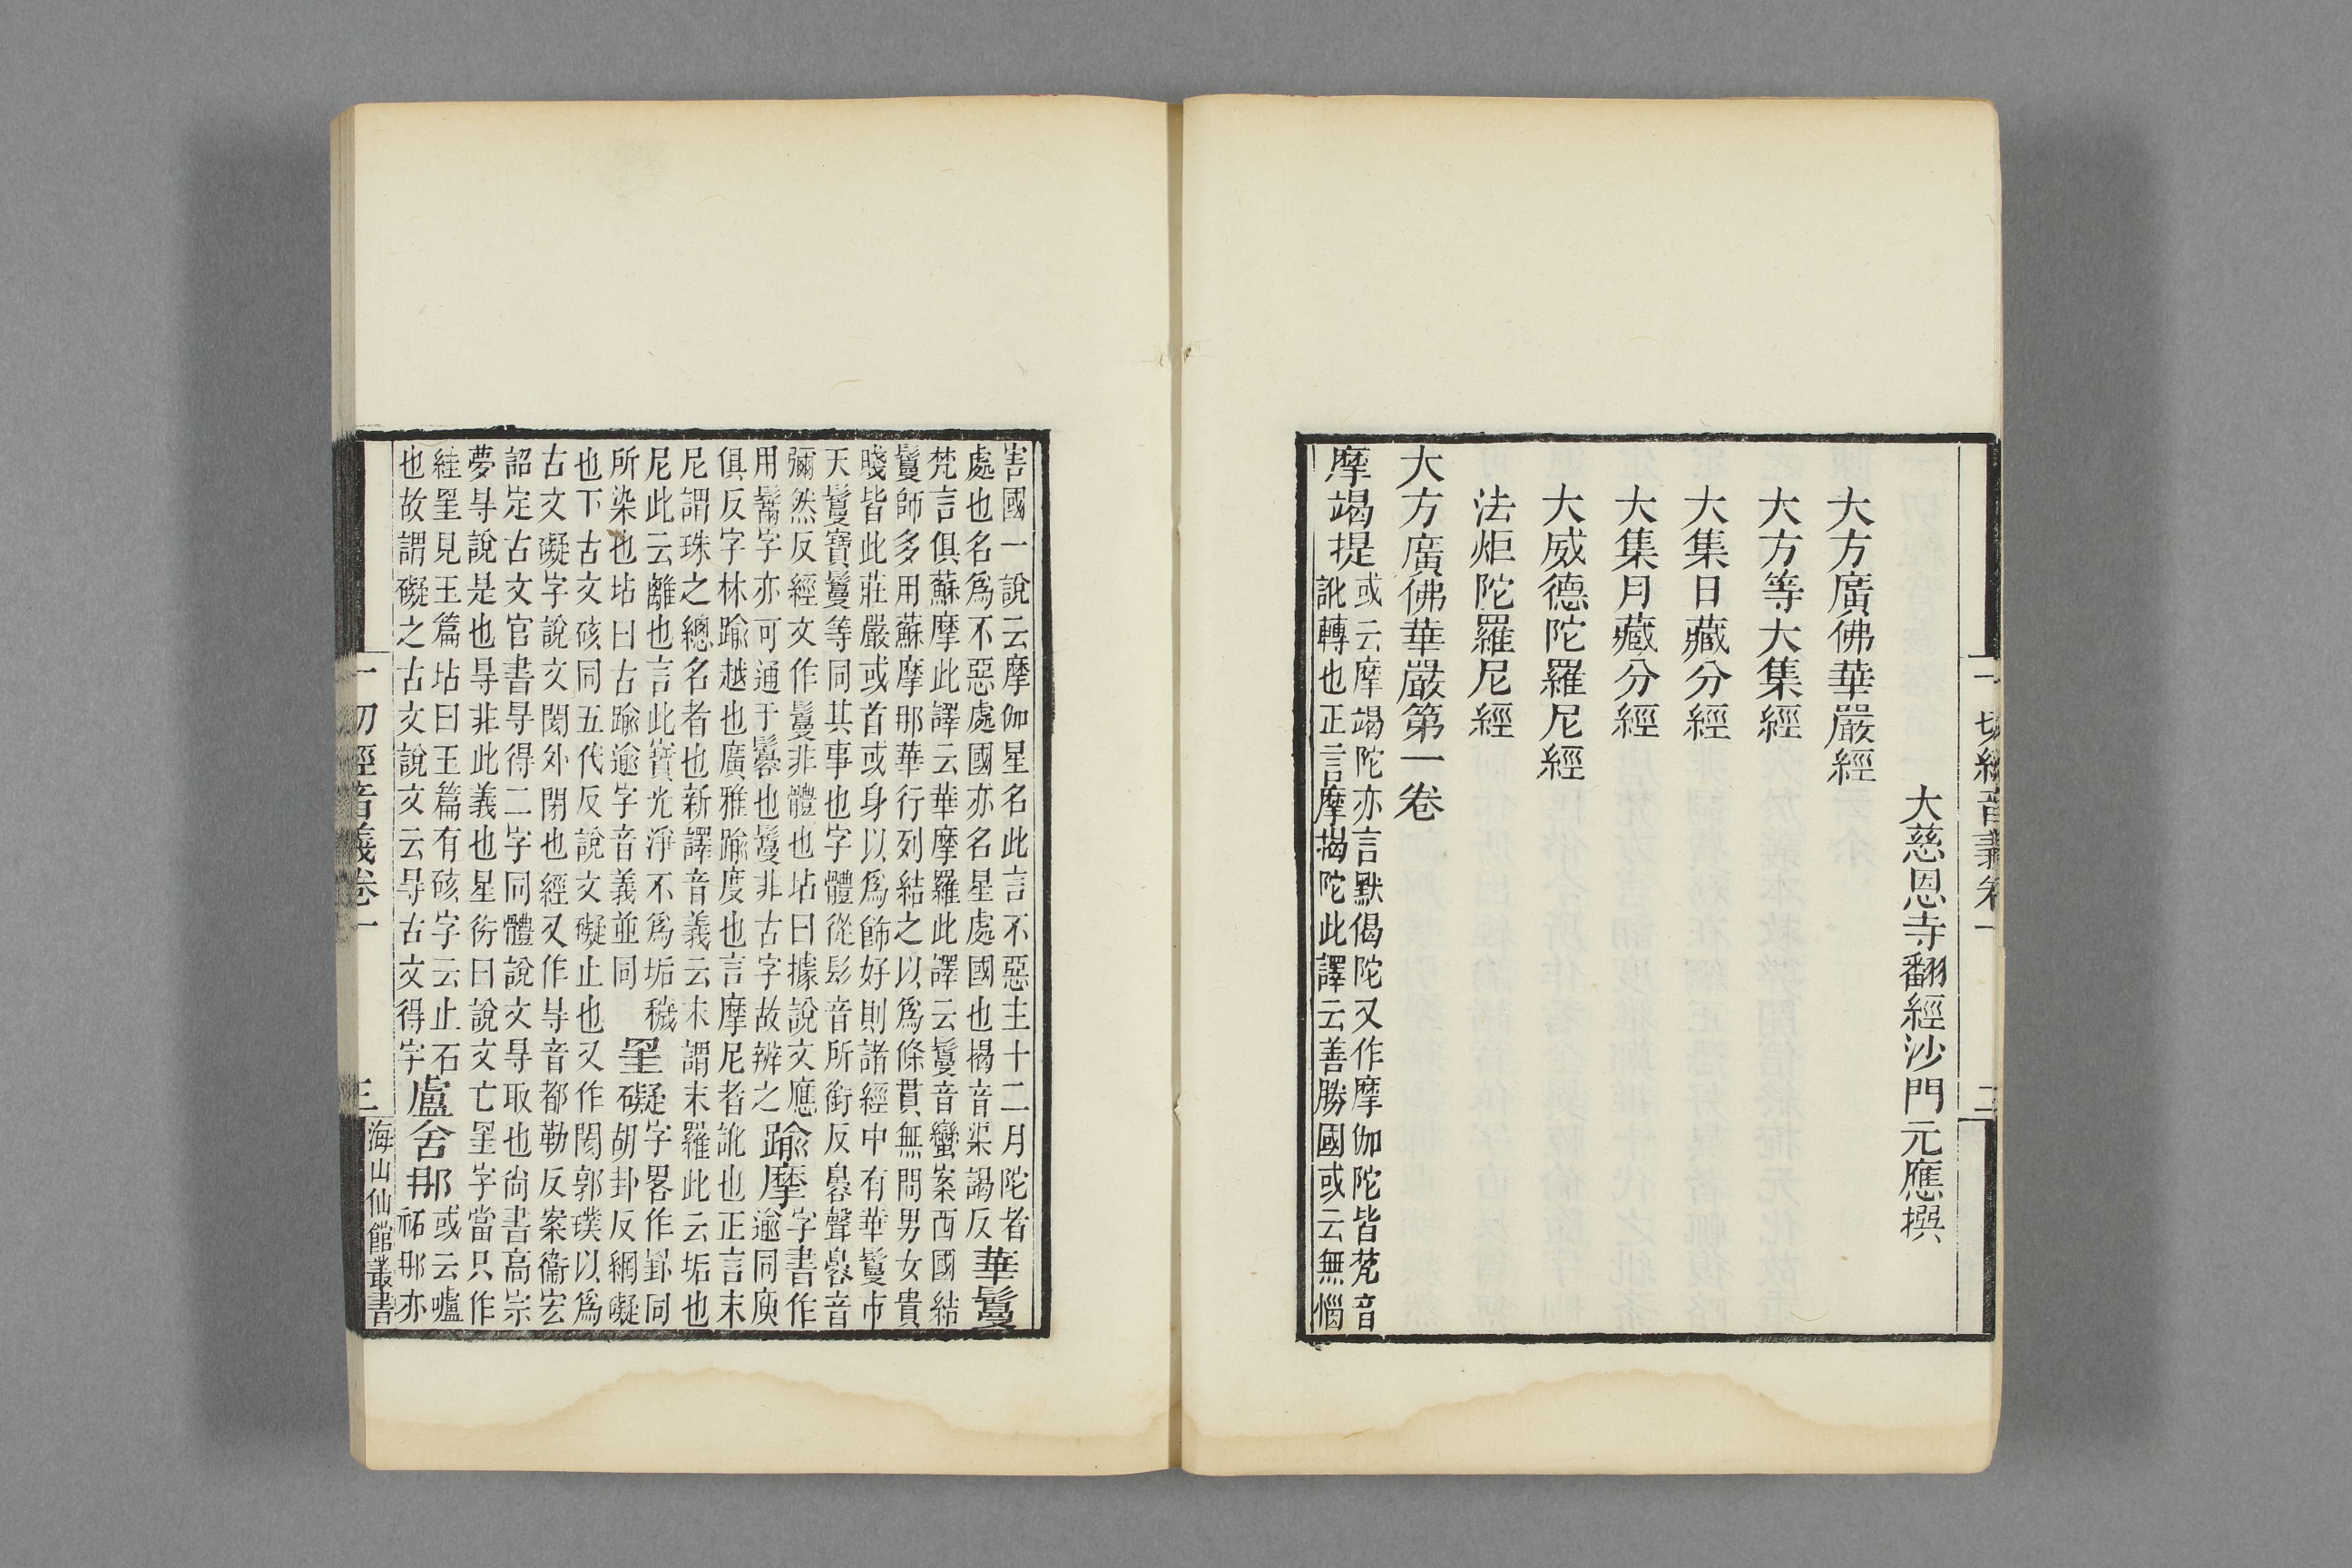 一切經音義卷一
二
大慈恩寺翻經沙門元應撰
大方廣佛華嚴經
大方等大集經
大集日藏分經
大集月藏分經
大威德陀羅尼經
法炬陀羅尼經
大方廣佛華嚴第一卷
摩竭提
或云摩竭陀亦言默偈陀又作摩伽陀皆梵音
訛轉也正言摩揭陀此譯云善勝國或云無惱
害國一說云摩伽星名此言不惡主十二月陀者
處也名爲不惡處國亦名星處國也揭音渠謁反
華鬘
梵言俱蘇摩此譯云華摩羅此譯云鬘音蠻案西國結
鬘師多用蘇摩那華行列結之以爲條貫無問男女貴
賤皆此莊嚴或首或身以爲飾好則諸經中有華鬘市
天鬘寶鬘等同其事也字體從髟音所銜反𦤝聲𦤝音
彌然反經文作鬘非體也坫曰據說文應
踰摩
字書作
用鬗字亦可通于鬘也鬘非古字故辨之
逾同庾
俱反字林踰越也廣雅踰度也言摩尼者訛也正言末
尼謂珠之總名者也新譯音義云末謂末羅此云垢也
尼此云離也言此寶光淨不爲垢穢
罣礙
字畧作罫同
所染也坫曰古踰逾字音義並同
胡卦反網礙
也下古文硋同五代反說文礙止也又作閡郭璞以爲
古文礙字說文閡外閉也經文作㝵音都勒反案衞宏
詔定古文官書㝵得二字同體說文㝵取也尙書高宗
夢㝵說是也㝵非此義也星衍曰說文亡罣字當只作
絓罣見玉篇坫曰玉篇有硋字云止石
盧舍那
或云嚧
也故謂礙之古文說文云㝵古文得字
祏那亦
一切經音義卷一
三
海山仙館叢書